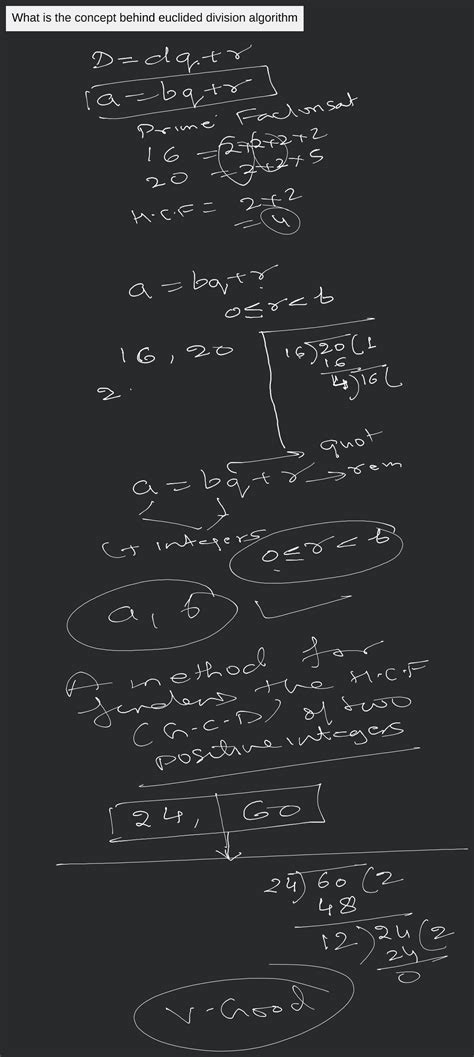 What is the concept behind euclided division algorithm
D = dq + r
a = bq + r
Prime
16 = 2+2+2+2
20 = 2+2+5
H.C.F = 2+2
= 4
a = bq + r
0 ≤ r < b
16, 20
16)20(1
16
4)16(
2
quot
a = bq + r → rem
(+ integers
0 ≤ r < b
a, b
A method for
the H.C.F
(G.C.D) of two
positive integers
24, 60
24)60(2
48
12)24(2
24
0
V-Good